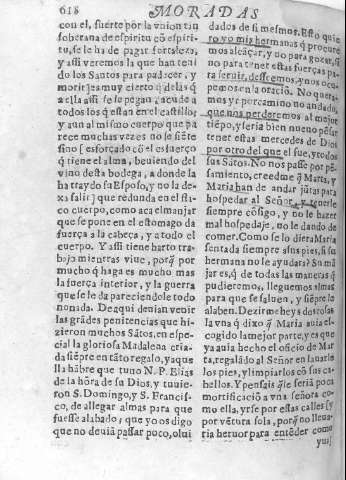 618
MORADAS
con el, fuerte por la vnion tan
soberana de espiritu cõ espiri-
tu, se le ha de pagar fortaleza,
y assi veremos la que han teni
do los Santos para padecer, y
morir, y es muy cierto q̃ de las q̃
a ella assi se le pegan, acude a
todos los q̃ estan en el castillo, y
y aun al mismo cuerpo que pa
rece muchas vezes no se siẽte
sino [ esforçado cõ el esfuerço
q̃ tiene el alma, beuiendo del
vino desta bodega, a donde la
ha traydo su Esposo, y no la de-
xa salir ] que redunda en el fla-
co cuerpo, como aca el manjar
que se pone en el estomago da
fuerça a la cabeça, y a todo el
cuerpo. Y assi tiene harto tra-
bajo mientras viue, porq̃ por
mucho q̃ haga es mucho mas
la fuerça interior, y la guerra
que se le da pareciendole todo
no nada. De aqui deuian venir
las grãdes penitencias que hi-
zieron muchos Sãtos, en espe-
cial la gloriosa Madalena cria-
da siẽpre en tãto regalo, y aque
lla hãbre que tuuo N. P. Elias
de la hõra de su Dios, y tuuie-
ron S. Domingo, y S. Francis-
co, de allegar almas para que
fuesse alabado; que yo os digo
que no deuiã passar poco, olui
dados de si mesmos. Esto quie
ro yo mis hermanas q̃ procure
mos alcãçar, y no para gozar, si
no para tener estas fuerças pa-
ra seruir, desseemos, y nos ocu-
pemos en la oraciõ. No quera-
mos yr por camino no andado,
que nos perderemos al mejor
tiẽpo, y seria bien nueuo pẽsar
tener estas mercedes de Dios
por otro del que el fue, y todos
sus Sãtos. No nos passe por pẽ-
samiento, creedme q̃ Marta, y
Maria han de andar jũtas para
hospedar al Señor, y tenerle
siempre cõsigo, y no le hazer
mal hospedaje, no le dando de
comer. Como se lo diera Maria
sentada siempre a sus pies, si su
hermana no le ayudara? Su mã
jar es, q̃ de todas las maneras q̃
pudieremos, lleguemos almas
para que se saluen, y siẽpre lo
alaben. Dezirme heys dos cosas
la vna q̃ dixo q̃ Maria auia es-
cogido la mejor parte, y es que
ya auia hecho el oficio de Mar
ta, regalãdo al Señor en lauarle
los pies, y limpiarlos cõ sus ca-
bellos. Y pensais q̃ le seria poca
mortificaciõ a vna señora co-
mo ella, yrse por essas calles [ y
por vẽtura sola, porq̃ no lleua-
ria heruor para entẽder como